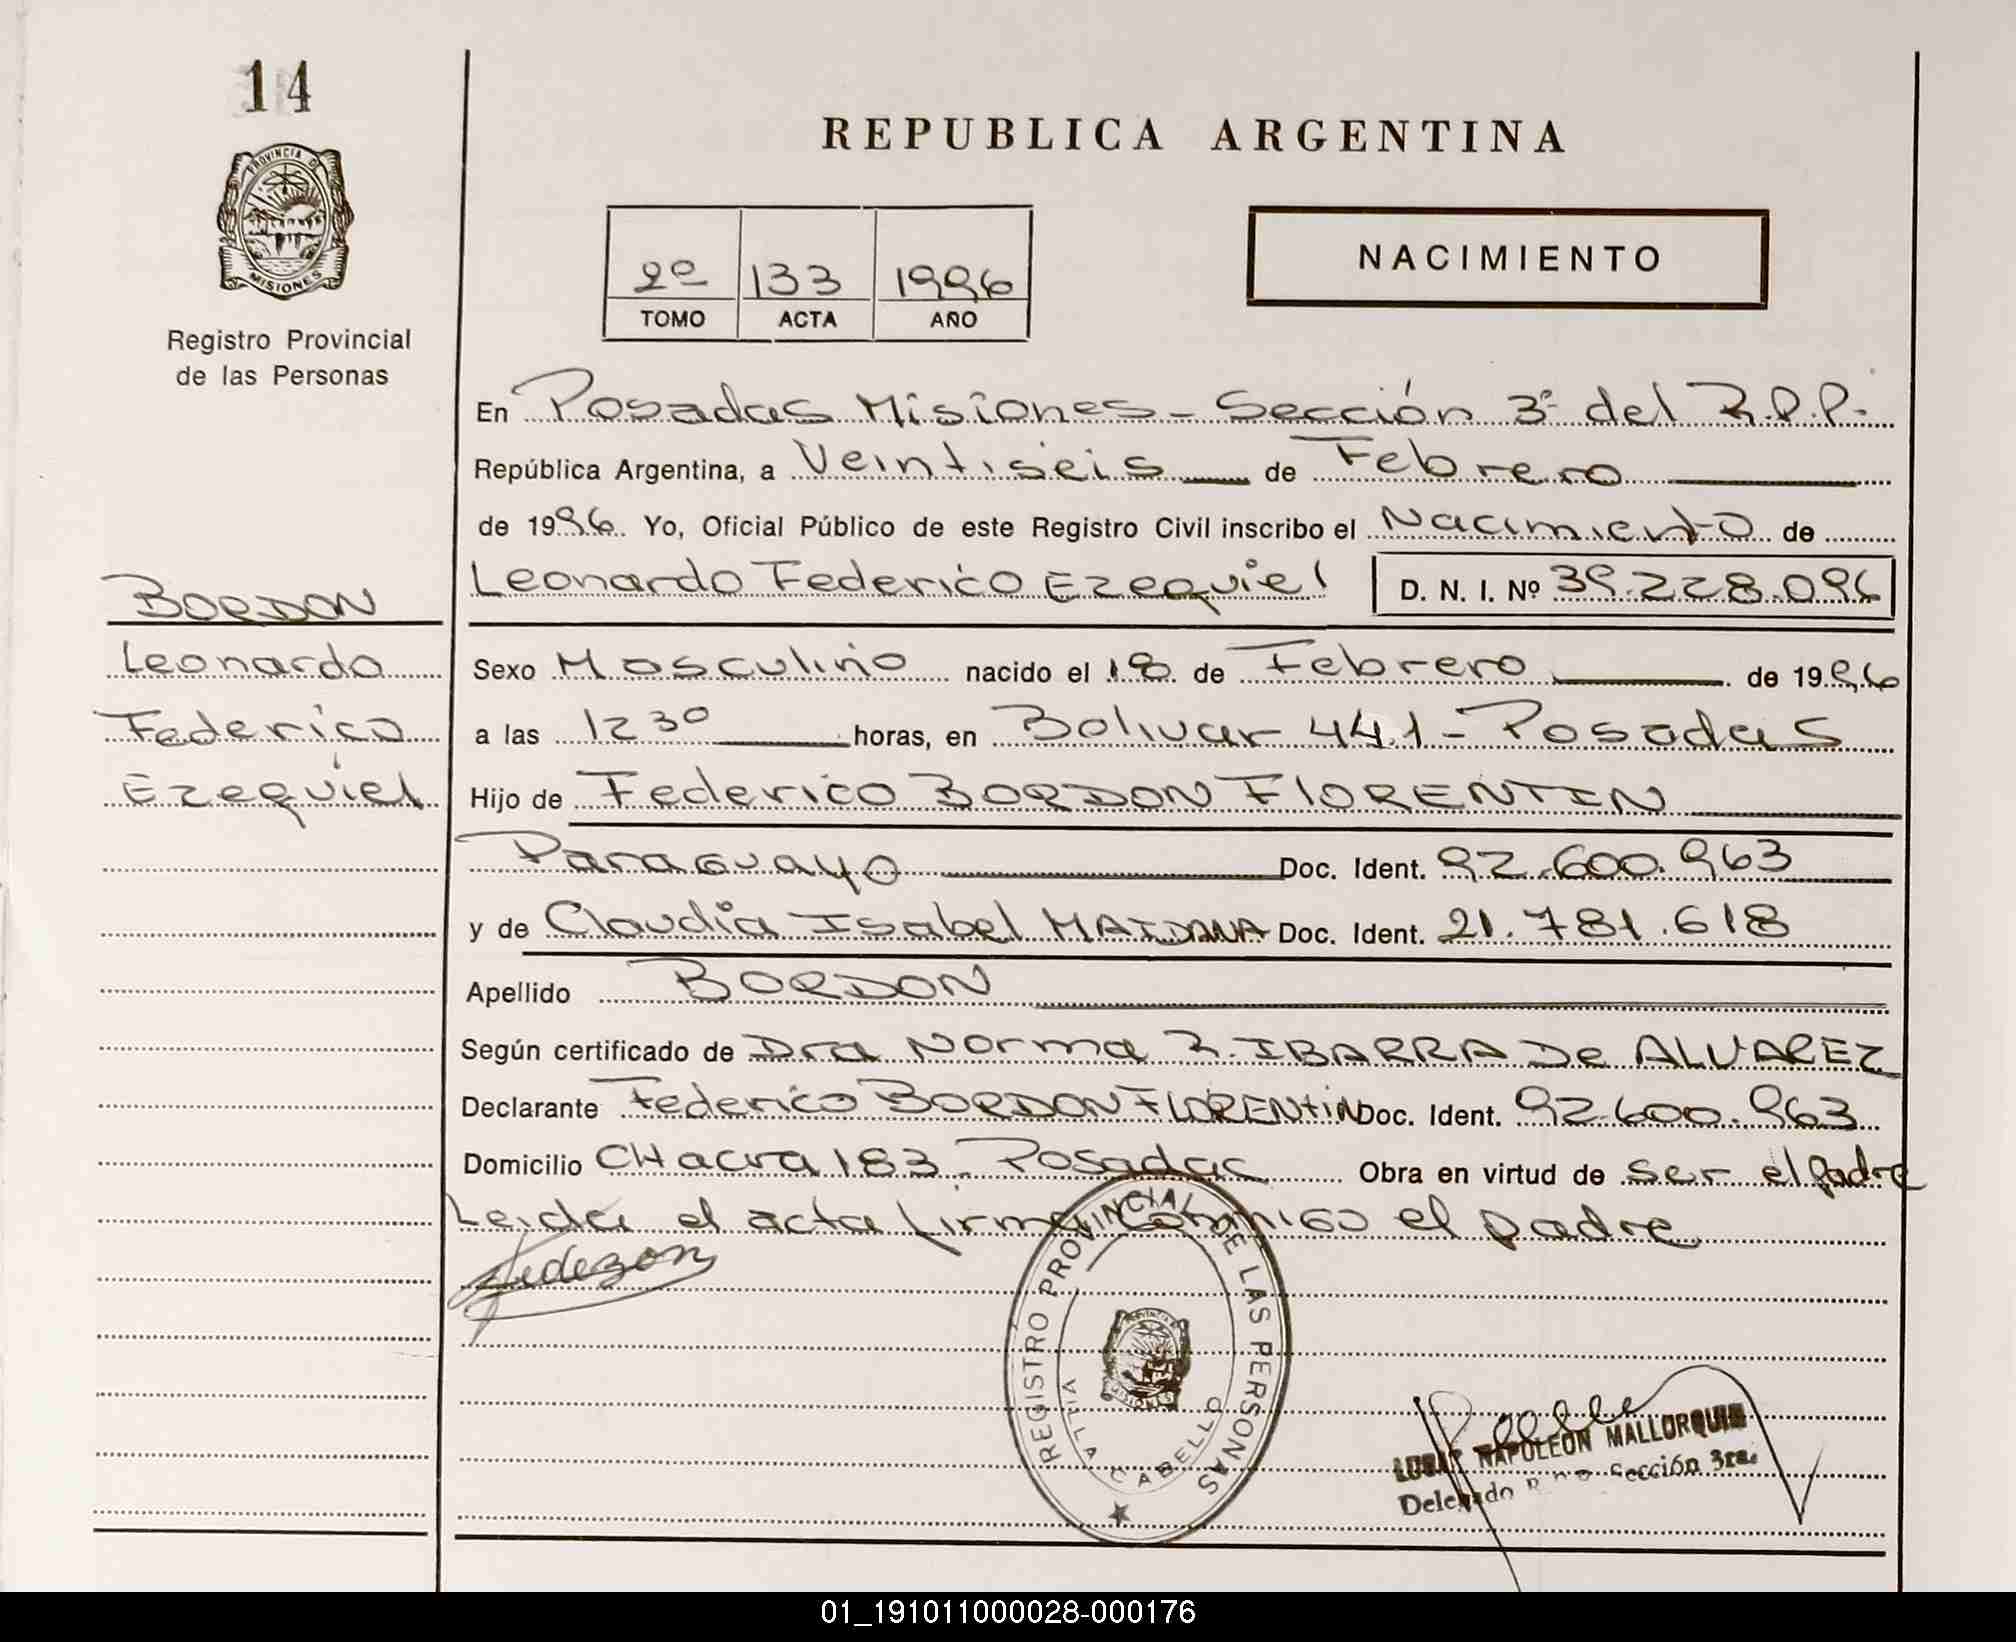 14
PROVINCIA DE
MISIONES
Registro Provincial
de las Personas
REPUBLICA ARGENTINA
NACIMIENTO
2º 133 1996
TOMO ACTA AÑO
En Posadas Misiones - Sección 3º del R.P.P.
República Argentina, a Veintiseis de Febrero
de 1996. Yo, Oficial Público de este Registro Civil inscribo el Nacimiento de
Leonardo Federico Ezequiel D. N. I. Nº 39.228.096
BORDON
Leonardo
Federico
Ezequiel
Sexo Masculino nacido el 18 de Febrero de 1996
a las 12 30 horas, en Bolivar 441 - Posadas
Hijo de Federico BORDON FLORENTIN
Paraguayo Doc. Ident. 92.600.963
y de Claudia Isabel MAIDANA Doc. Ident. 21.781.618
Apellido BORDON
Según certificado de Dra Norma R. IBARRA De ALVAREZ
Declarante Federico BORDON FLORENTIN Doc. Ident. 92.600.963
Domicilio CHacra 183 - Posadas Obra en virtud de ser el padre
Leida el acta firma conmigo el padre
REGISTRO PROVINCIAL DE LAS PERSONAS
VILLA CABELLO
MISIONES
NAPOLEON MALLORQUIN
Delegado Sección 3ra.
01_191011000028-000176